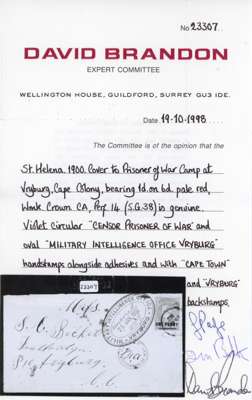 No 23307
DAVID BRANDON
EXPERT COMMITTEE
WELLINGTON HOUSE, GUILDFORD, SURREY GU3 IDE.
Date 19-10-1998
The Committee is of the opinion that the
St. Helena. 1900. Cover to Prisoner of War Camp at
Vryburg, Cape Colony, bearing 1d. on 6d. pale red,
Wmk. Crown CA, Perf. 14 (S.G.38) is genuine.
Violet circular "CENSOR PRISONER OF WAR" and
oval "MILITARY INTELLIGENCE OFFICE VRYBURG"
handstamps alongside adhesives and with "CAPE TOWN"
and "VRYBURG"
backstamps.
23307
ONE PENNY